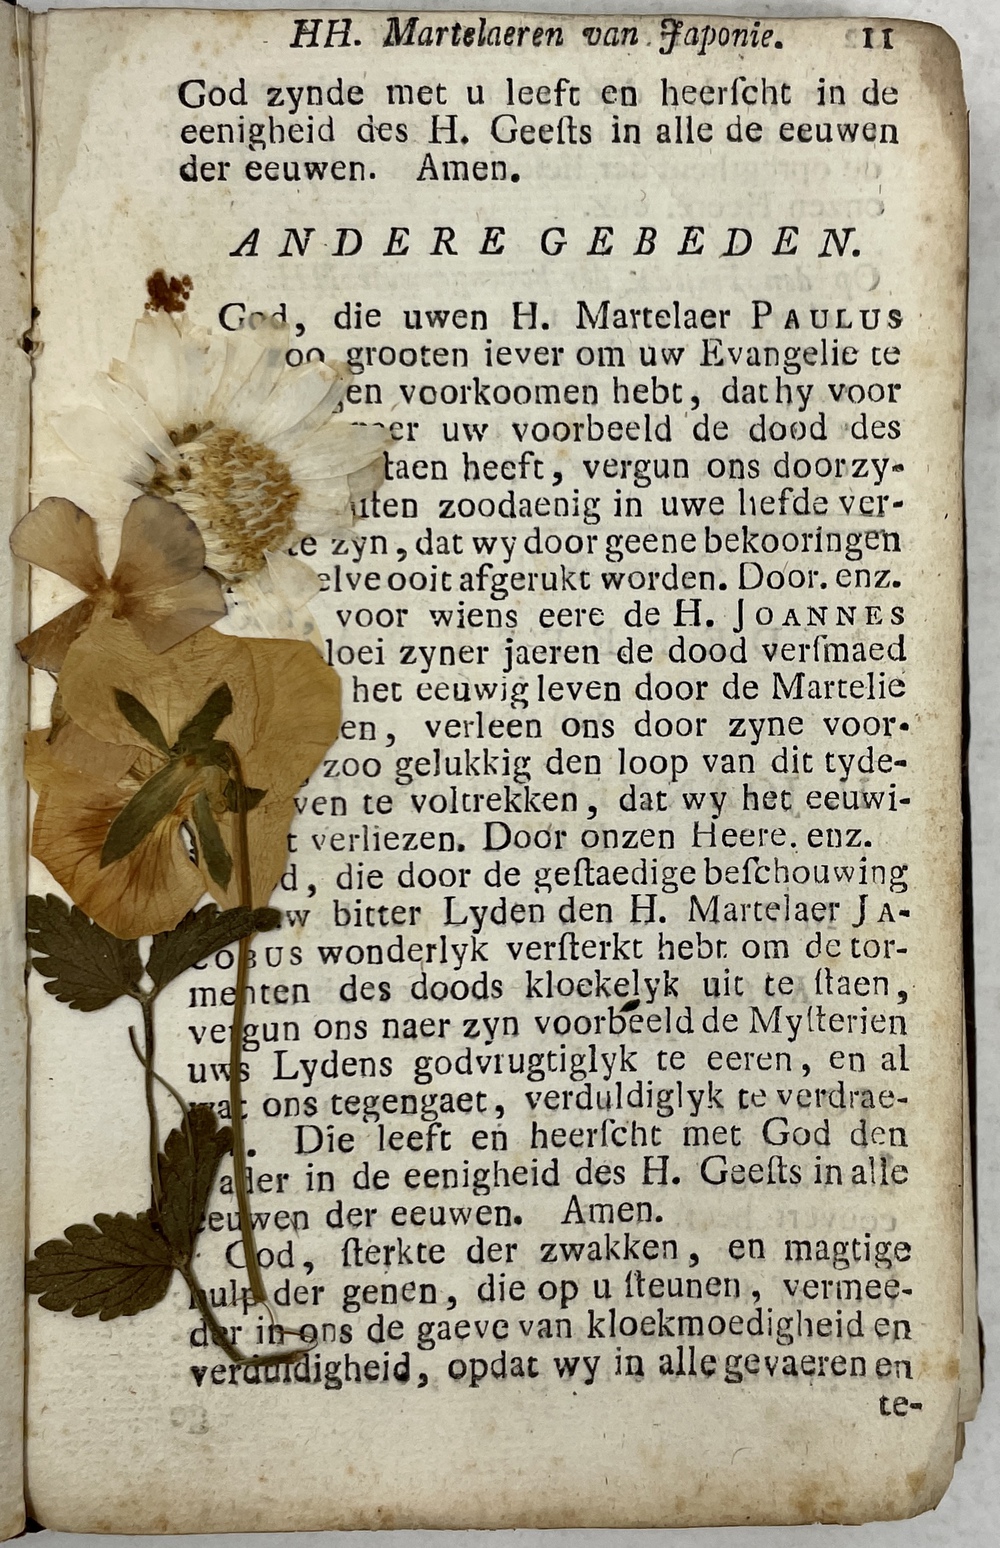 HH. Martelaeren van Japonie. 11
God zynde met u leeft en heerſcht in de
eenigheid des H. Geeſts in alle de eeuwen
der eeuwen. Amen.
ANDERE GEBEDEN.
God, die uwen H. Martelaer PAULUS
oo grooten iever om uw Evangelie te
gen voorkoomen hebt, dat hy voor
uw voorbeeld de dood des
taen heeft, vergun ons door zy-
zoodaenig in uwe liefde ver-
te zyn, dat wy door geene bekooringen
elve ooit afgerukt worden. Door. enz.
voor wiens eere de H. JOANNES
loei zyner jaeren de dood verſmaed
het eeuwig leven door de Martelie
en, verleen ons door zyne voor-
zoo gelukkig den loop van dit tyde-
ven te voltrekken, dat wy het eeuwi-
t verliezen. Door onzen Heere. enz.
d, die door de geſtaedige beſchouwing
w bitter Lyden den H. Martelaer JA-
COBUS wonderlyk verſterkt hebt om de tor-
menten des doods kloekelyk uit te ſtaen,
vergun ons naer zyn voorbeeld de Myſterien
uws Lydens godvrugtiglyk te eeren, en al
wat ons tegengaet, verduldiglyk te verdrae-
. Die leeft en heerſcht met God den
ader in de eenigheid des H. Geeſts in alle
eeuwen der eeuwen. Amen.
God, ſterkte der zwakken, en magtige
hulp der genen, die op u ſteunen, vermee-
der in ons de gaeve van kloekmoedigheid en
verduldigheid, opdat wy in alle gevaeren en
te-